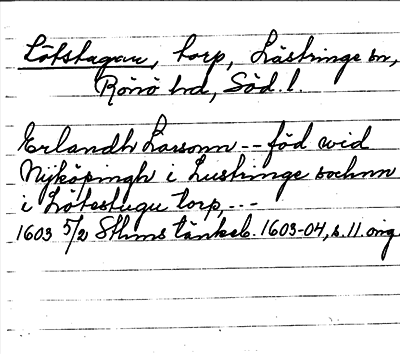 Lötstugan, torp, Lästringe sn,
Rönö hd, Söd. l.
Erlandh Larsonn -- föd wid
Nyköpingh i Lustringe sochnn
i Lötestugu torp, ---
1603 5/2 Sthms tänkeb. 1603-04, s. 11 orig.